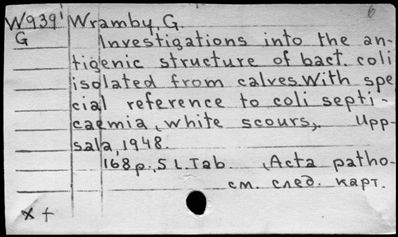 6
W939¹ Wramby, G.
G Investigations into the an-
tigenic structure of bact. coli
isolated from calves. With spe
cial reference to coli septi-
caemia, white scours,. Upp-
sala, 1948.
168 p., 5 L. Tab. (Acta patho-
см. след. карт.
x +